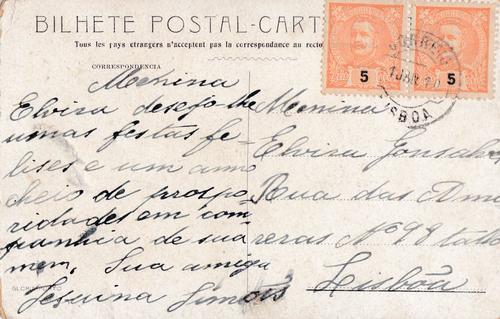 BILHETE POSTAL-CART
Tous les pays etrangers n'acceptent pas la correspondance au recto
CORRESPONDENCIA
Menina
Elvira desejo lhe
umas festas fe-
lises e um anno
cheio de prospe-
ridades em com-
panhia de sua
mem, Sua amiga
Jesuina Simois
Menina
Elvira Gonsalves
Rua das Amo
reras Nº 98
Lisbôa
5
5
CORREIO
LISBOA